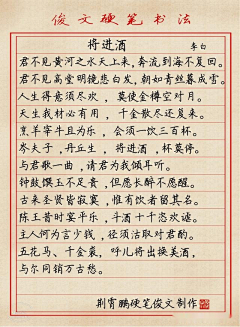 俊文硬笔书法
将进酒
李白
君不见黄河之水天上来，奔流到海不复回。
君不见高堂明镜悲白发，朝如青丝暮成雪。
人生得意须尽欢，莫使金樽空对月。
天生我材必有用，千金散尽还复来。
烹羊宰牛且为乐，会须一饮三百杯。
岑夫子，丹丘生，将进酒，杯莫停。
与君歌一曲，请君为我倾耳听。
钟鼓馔玉不足贵，但愿长醉不愿醒。
古来圣贤皆寂寞，惟有饮者留其名。
陈王昔时宴平乐，斗酒十千恣欢谑。
主人何为言少钱，径须沽取对君酌。
五花马、千金裘，呼儿将出换美酒，
与尔同销万古愁。
荆霄鹏硬笔俊文制作